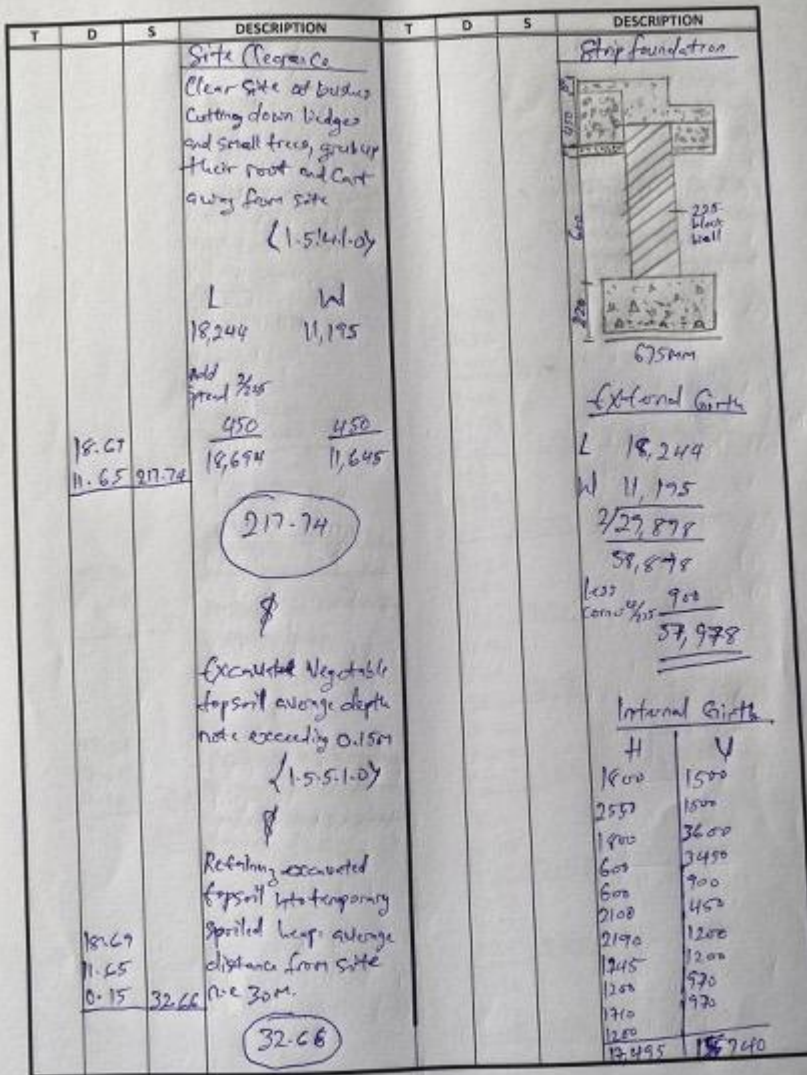 T D S DESCRIPTION
Site Clearance
Clear site of bushes
Cutting down hedges
and small trees, grub up
their root and Cart
away from site
{1.5.4.1.0}
L W
18,244 11,195
Add
spread 2/225
450 450
18,694 11,645
18.69
11.65 217.74
217.74
&
Excavated Vegetable
topsoil average depth
note exceeding 0.15M
{1.5.5.1.0}
&
Retaining excavated
topsoil into temporary
spoiled heap average
18.69
11.65 distance from site
0.15 32.66 n.e 30M.
32.66
T D S DESCRIPTION
Strip foundation
450
600
225
block
wall
220
675MM
External Girth
L 18,244
W 11,195
58,878
less
corner 4/225 900
57,978
Internal Girth
H V
1800 1500
2550 1500
1800 3600
600 3450
600 900
2100 450
2190 1200
1245 1200
1200 970
1710 970
1200
17,495 740